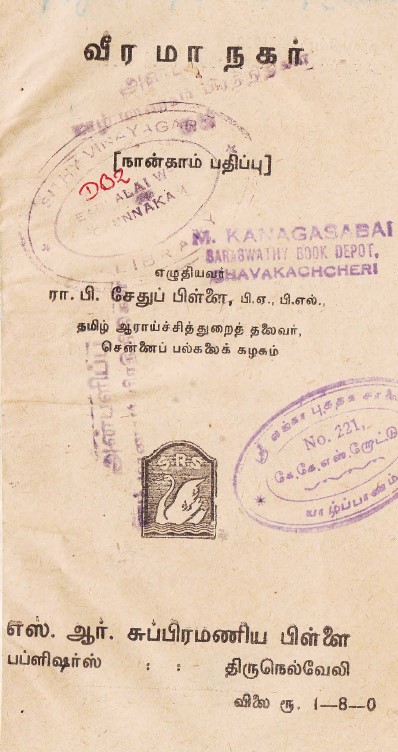 வீர மா நகர்
[நான்காம் பதிப்பு]
SITHY VINAYAGAR
D02
LIBRARY
M. KANAGASABAI
SARASWATHY BOOK DEPOT,
CHAVAKACHCHERI
எழுதியவர்
ரா. பி. சேதுப் பிள்ளை, பி.ஏ., பி.எல்.,
தமிழ் ஆராய்ச்சித்துறைத் தலைவர்,
சென்னைப் பல்கலைக் கழகம்
அன்பளிப்பு
ஸ்ரீ லங்கா புத்தக சாலை
No. 221,
கே.கே.எஸ்.ரோட்டு
யாழ்ப்பாணம்
S.R.S
எஸ். ஆர். சுப்பிரமணிய பிள்ளை
பப்ளிஷர்ஸ் : : திருநெல்வேலி
விலை ரூ. 1—8—0